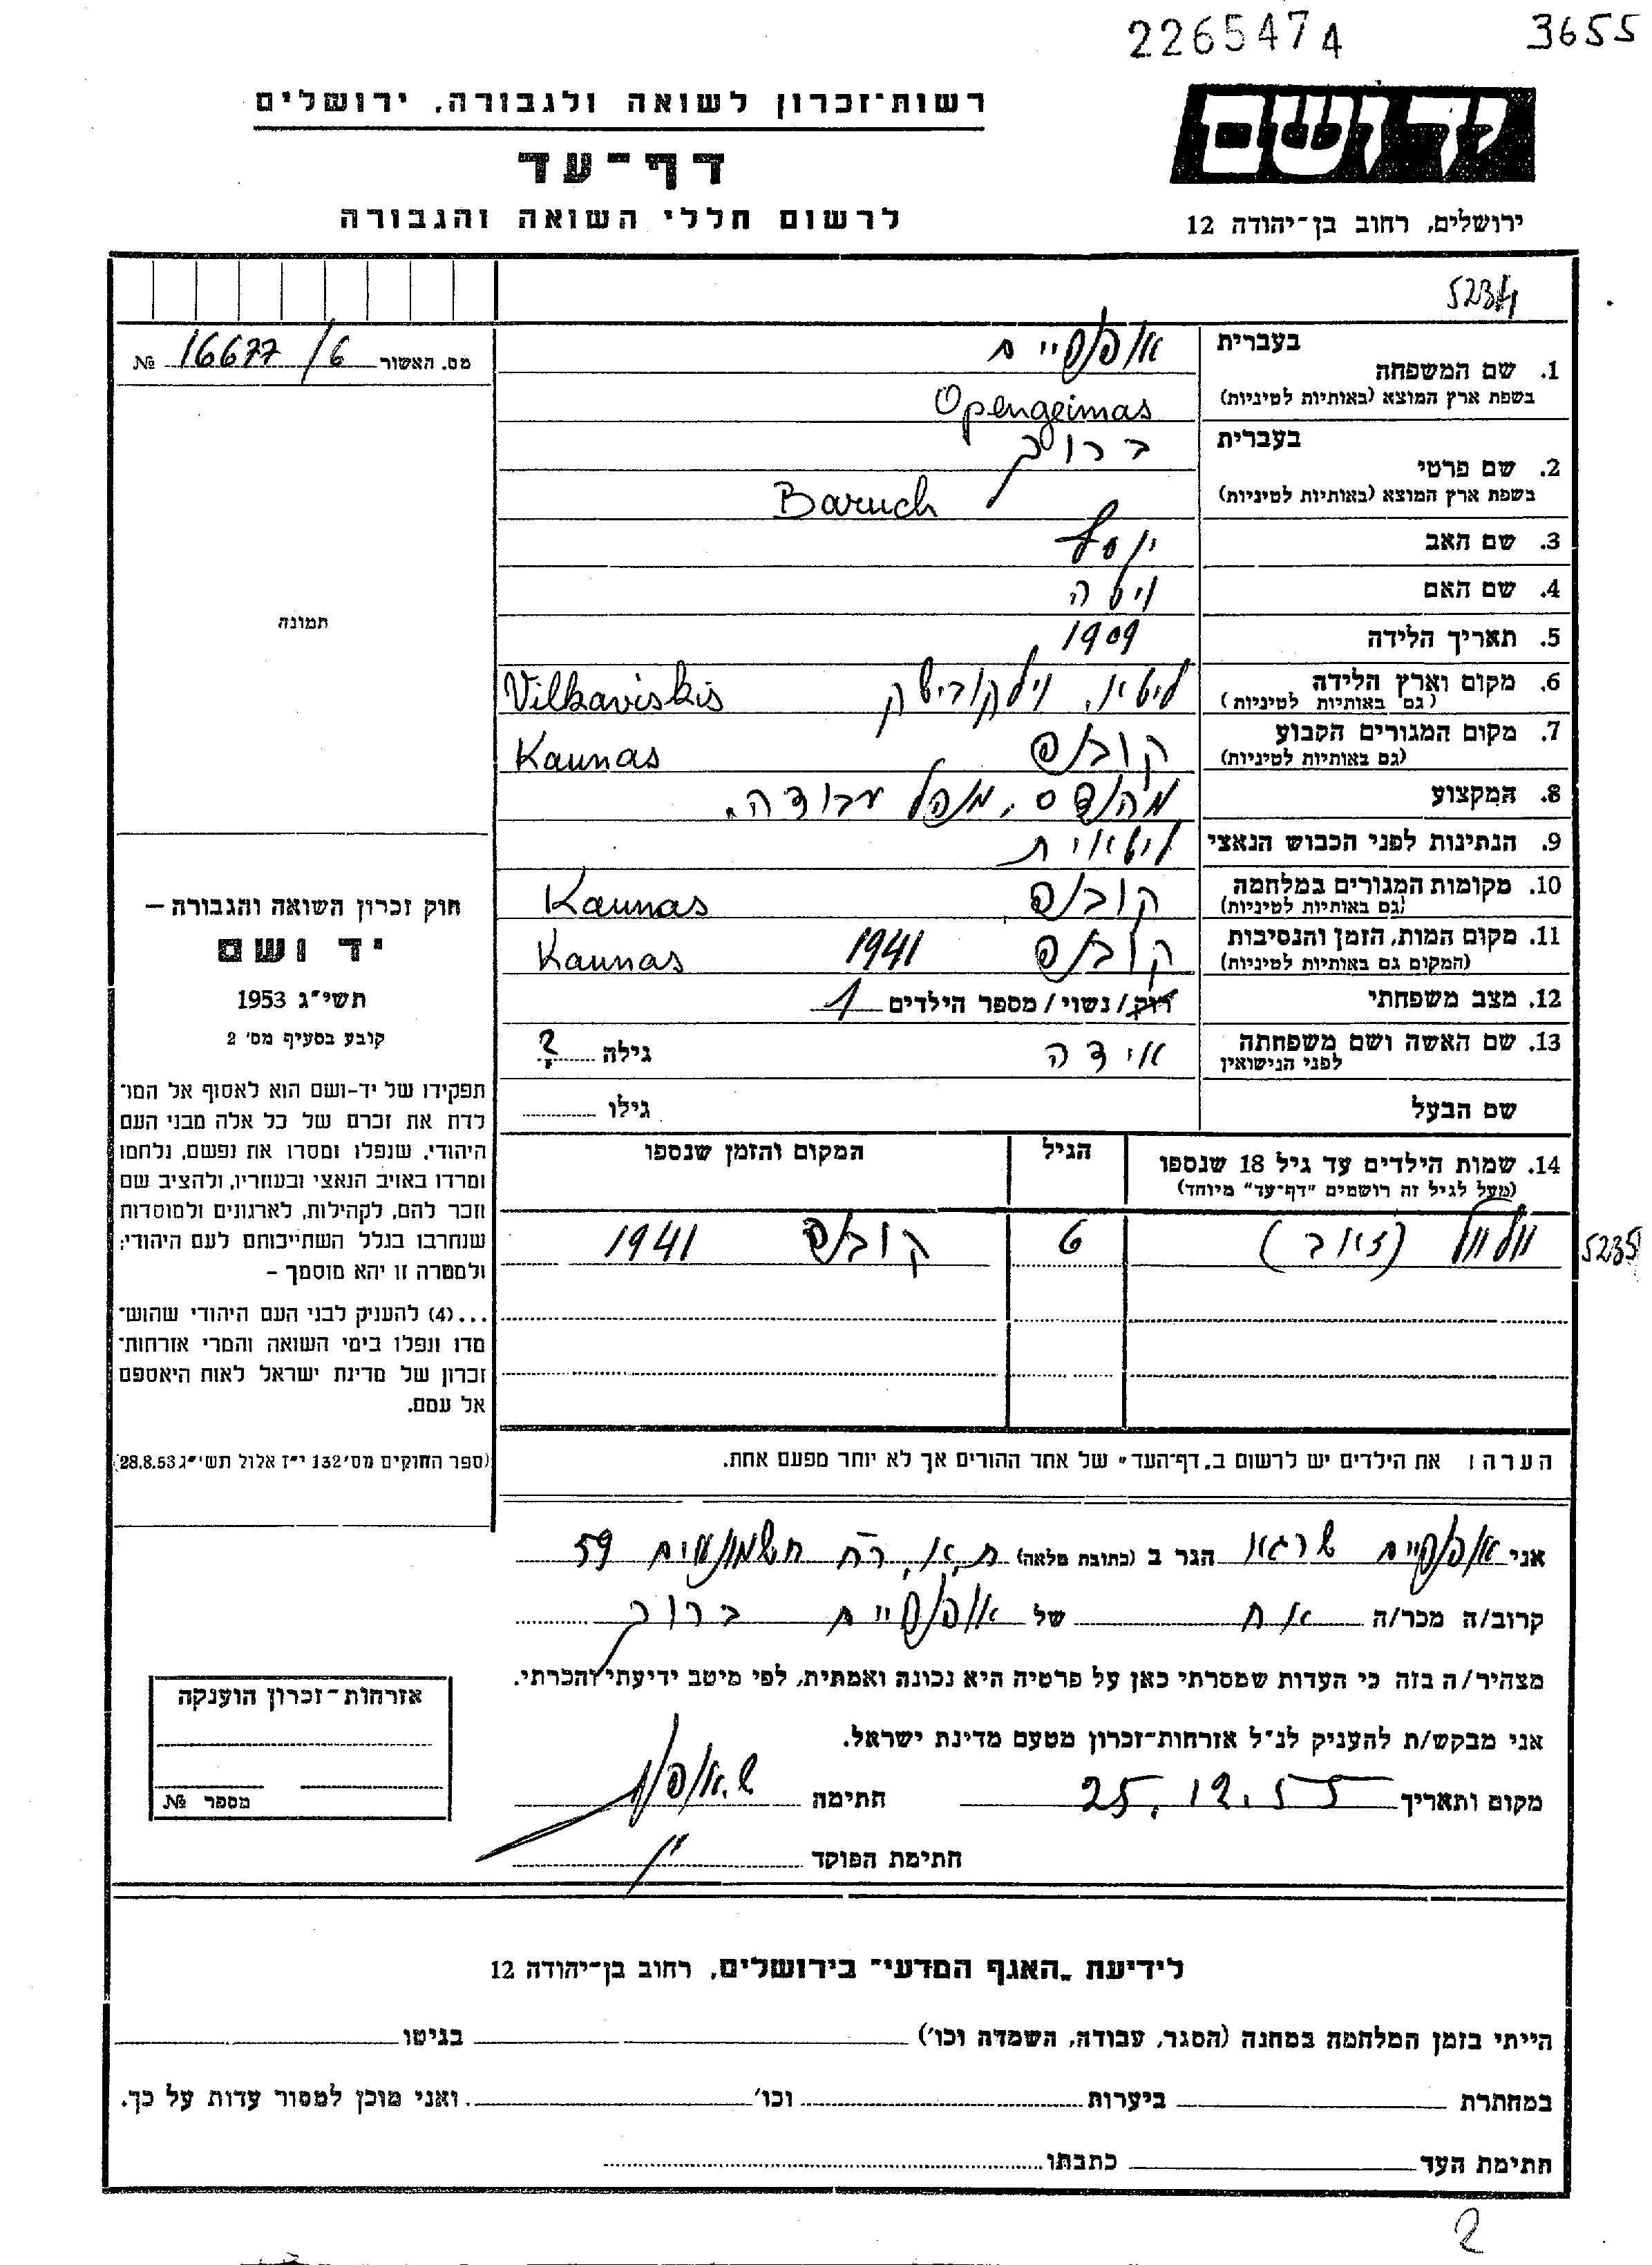 2265474
3655
רשות־זכרון לשואה ולגבורה, ירושלים
יד ושם
דף־עד
לרשום חללי השואה והגבורה
ירושלים, רחוב בן־יהודה 12
5234
מס. האשור 16677/6 №
בעברית
1. שם המשפחה
בשפת ארץ המוצא (באותיות לטיניות) Opengeimas
בעברית ברוך
2. שם פרטי
בשפת ארץ המוצא (באותיות לטיניות) Baruch
3. שם האב יוסף
4. שם האם
5. תאריך הלידה 1909
6. מקום וארץ הלידה ליטא, וילקובישק Vilkaviskis
(גם באותיות לטיניות)
7. מקום המגורים הקבוע קובנה Kaunas
(גם באותיות לטיניות)
8. המקצוע מהנדס, מנהל עבודה.
9. הנתינות לפני הכבוש הנאצי ליטאית
10. מקומות המגורים במלחמה קובנה Kaunas
(גם באותיות לטיניות)
11. מקום המות, הזמן והנסיבות קובנה 1941 Kaunas
(המקום גם באותיות לטיניות)
12. מצב משפחתי רוק/נשוי/מספר הילדים 1
13. שם האשה ושם משפחתה אידה גילה ?
לפני הנישואין
שם הבעל גילו
14. שמות הילדים עד גיל 18 שנספו הגיל המקום והזמן שנספו
(מעל לגיל זה רושמים "דף־עד" מיוחד)
וולוול (זאב) 6 קובנה 1941
5235
תמונה
חוק זכרון השואה והגבורה –
יד ושם
תשי"ג 1953
קובע בסעיף מס' 2
תפקידו של יד-ושם הוא לאסוף אל המו־
לדת את זכרם של כל אלה מבני העם
היהודי, שנפלו ומסרו את נפשם, נלחמו
ומרדו באויב הנאצי ובעוזריו, ולהציב שם
וזכר להם, לקהילות, לארגונים ולמוסדות
שנחרבו בגלל השתייכותם לעם היהודי;
ולמטרה זו יהא מוסמך –
...(4) להעניק לבני העם היהודי שהוש־
מדו ונפלו בימי השואה והמרי אזרחות־
זכרון של מדינת ישראל לאות היאספם
אל עמם.
(ספר החוקים מס' 132 י"ז אלול תשי"ג 28.8.53)
הערה: את הילדים יש לרשום ב„דף־העד" של אחד ההורים אך לא יותר מפעם אחת.
אני אופנהיים שרגא הגר ב (כתובת מלאה) ת.א. רח חשמונאים 59
קרוב/ה מכר/ה אח של אופנהיים ברוך
מצהיר/ה בזה כי העדות שמסרתי כאן על פרטיה היא נכונה ואמתית, לפי מיטב ידיעתי והכרתי.
אני מבקש/ת להעניק לנ"ל אזרחות־זכרון מטעם מדינת ישראל.
מקום ותאריך 25.12.55 חתימה
חתימת הפוקד
אזרחות־זכרון הוענקה
מספר №
לידיעת „האגף המדעי" בירושלים, רחוב בן־יהודה 12
הייתי בזמן המלחמה במחנה (הסגר, עבודה, השמדה וכו') בגיטו
במחתרת ביערות וכו' ואני מוכן למסור עדות על כך.
חתימת העד כתבתו
2